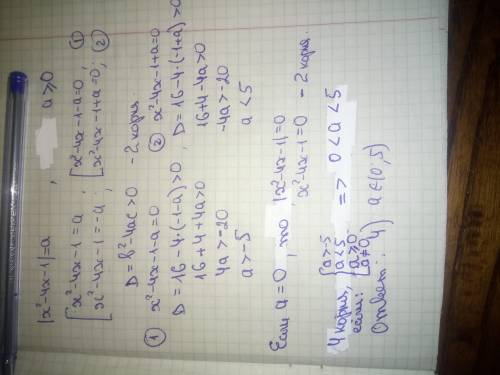 |x²-4x-1|=a, a≥0
[x²-4x-1=a; [x²-4x-1-a=0; ①
x²-4x-1=-a; x²-4x-1+a=0; ②
D=b²-4ac>0 - 2 корня.
① x²-4x-1-a=0 ② x²-4x-1+a=0
D=16-4·(-1-a)>0, D=16-4·(-1+a)>0
16+4+4a>0 16+4-4a>0
4a>-20 -4a>-20
a>-5 a<5
Если a=0, то |x²-4x-1|=0
x²-4x-1=0 - 2 корня
4 корня, если: {a>-5 a<5 a≥0 a≠0 => 0<a<5
Ответ: 4) a∈(0;5)